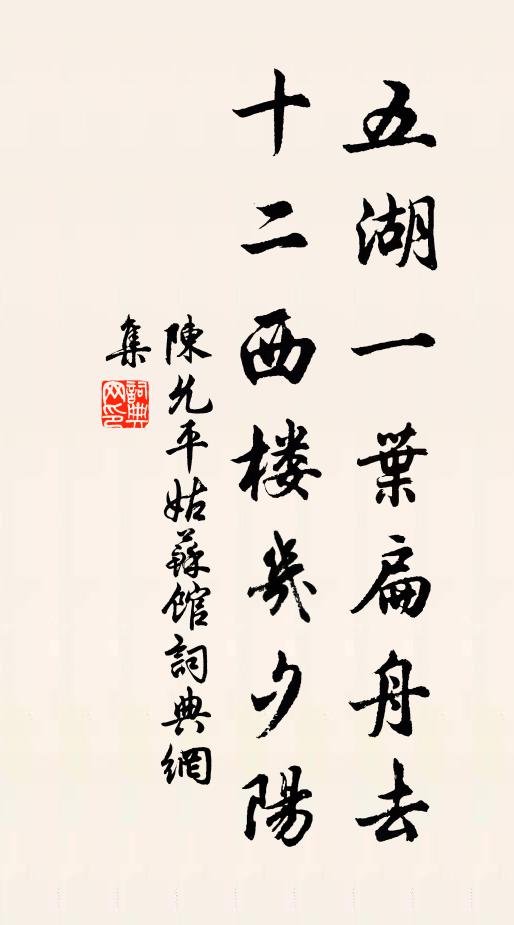 五湖一葉扁舟去
十二西楼幾夕陽
陳允平姑蘇館詞典網
集
詞典
网印